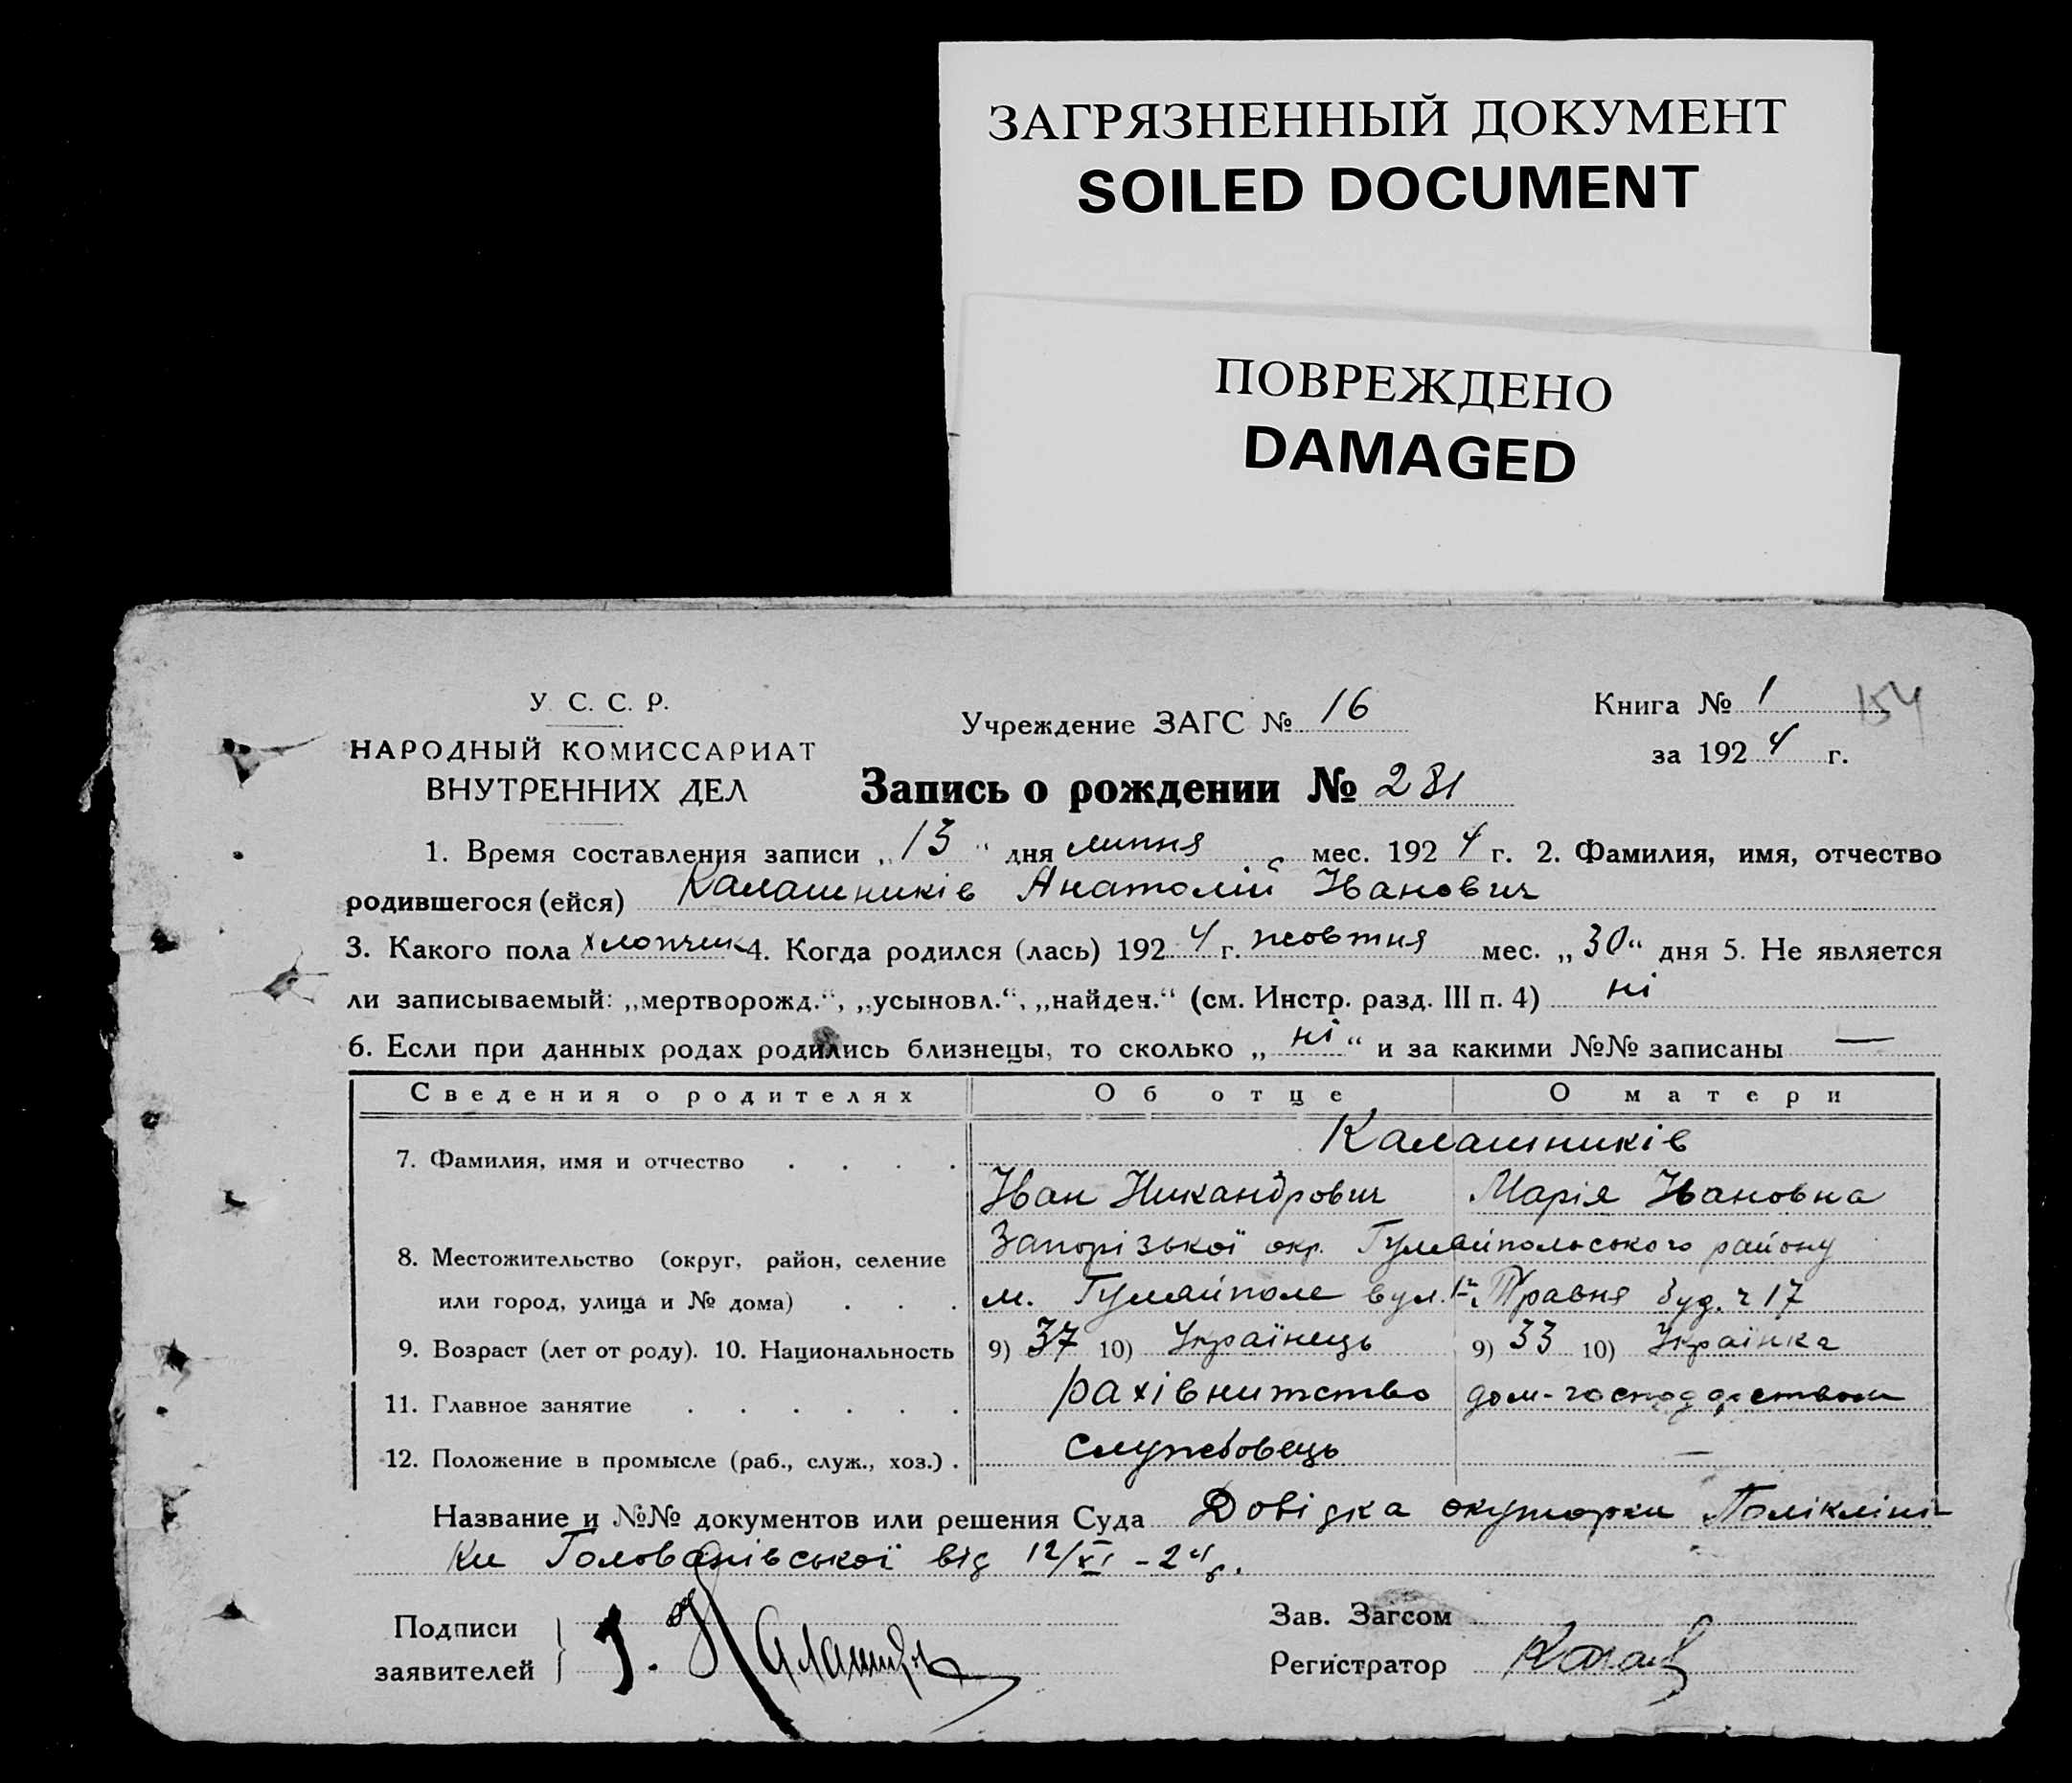 ЗАГРЯЗНЕННЫЙ ДОКУМЕНТ
SOILED DOCUMENT
ПОВРЕЖДЕНО
DAMAGED
У. С. С. Р.
НАРОДНЫЙ КОМИССАРИАТ
ВНУТРЕННИХ ДЕЛ
Учреждение ЗАГС № 16
Книга № 1 154
за 1924 г.
Запись о рождении № 281
1. Время составления записи „13“ дня липня мес. 1924 г. 2. Фамилия, имя, отчество
родившегося (ейся) Калашників Анатолій Иванович
3. Какого пола хлопчик 4. Когда родился (лась) 1924 г. жовтня мес. „30“ дня 5. Не является
ли записываемый: „мертворожд.“, „усыновл.“, „найден.“ (см. Инстр. разд. III п. 4) ні
6. Если при данных родах родились близнецы, то сколько „ні“ и за какими №№ записаны —
Сведения о родителях Об отце О матери
7. Фамилия, имя и отчество . . . . Калашників
Иван Никандрович Марія Ивановна
8. Местожительство (округ, район, селение Запорізької окр. Гуляйпольського району
или город, улица и № дома) . . . м. Гуляйполе вул. 1го Травня буд. ч 17
9. Возраст (лет от роду). 10. Национальность 9) 37 10) Українець 9) 33 10) Українка
11. Главное занятие . . . . . . рахівнитство дом-господарством
12. Положение в промысле (раб., служ., хоз.) . службовець —
Название и №№ документов или решения Суда Довідка акушорки Полікліні-
ки Голованівської від 12/XI - 24 р.
Подписи
заявителей } І. Калашников
Зав. Загсом
Регистратор